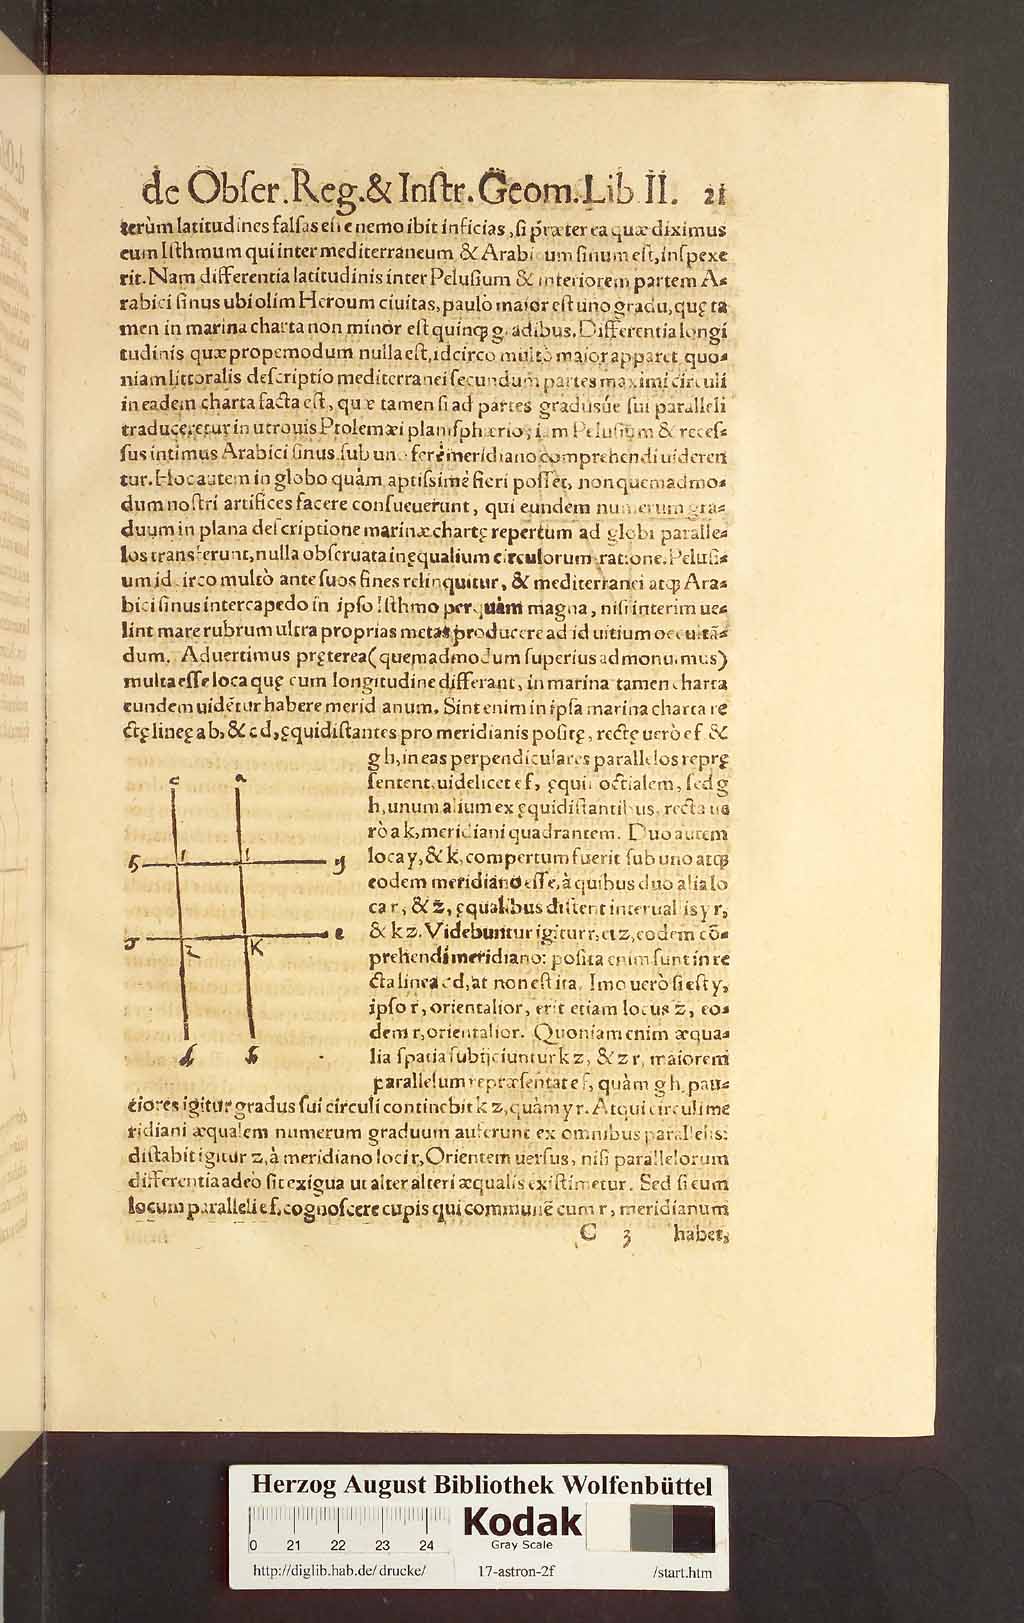 de Obſer. Reg. & Inſtr. Geom. Lib II. 21
terùm latitudines falſas eſſe nemo ibit inficias, ſi præterea quæ diximus
cum Iſthmum qui inter mediterraneum & Arabicum ſinum eſt, inſpexe
rit. Nam differentia latitudinis inter Peluſium & interiorem partem A⸗
rabici ſinus ubi olim Heroum ciuitas, paulò maior eſt uno gradu, quę ta
men in marina charta non minor eſt quinqꝫ gradibus. Differentia longi
tudinis quæ propemodum nulla eſt, idcirco multò maior apparet, quo⸗
niam littoralis deſcriptio mediterranei ſecundum partes maximi circuli
in eadem charta facta eſt, quæ tamen ſi ad partes gradusúe ſui paralleli
traduceretur in utrouis Ptolemæi planiſphærio, iam Peluſium & receſ⸗
ſus intimus Arabici ſinus ſub uno ferè meridiano comprehendi uideren
tur. Hoc autem in globo quàm aptiſsimè fieri poſſet, non quemadmo⸗
dum noſtri artifices facere conſueuerunt, qui eundem numerum gra⸗
duum in plana deſcriptione marinæ chartę repertum ad globi paralle⸗
los transferunt, nulla obſeruata inęqualium circulorum ratione. Peluſi⸗
um idcirco multò ante ſuos fines relinquitur, & mediterranei atqꝫ Ara⸗
bici ſinus intercapedo in ipſo Iſthmo perquàm magna, niſi interim ue⸗
lint mare rubrum ultra proprias metas producere ad id uitium occultã⸗
dum. Aduertimus pręterea (quemadmodum ſuperius admonuimus)
multa eſſe loca quę cum longitudine differant, in marina tamen charta
eundem uidẽtur habere meridianum. Sint enim in ipſa marina charta re
ctę lineę a b, & c d, ęquidiſtantes pro meridianis poſitę, rectę uerò e f &
g h, in eas perpendiculares parallelos reprę
ſentent, uidelicet e f, ęquinoctialem, ſed g
h, unum alium ex ęquidiſtantibus, recta ue
rò a k, meridiani quadrantem. Duo autem
loca y, & k, compertum fuerit ſub uno atqꝫ
eodem meridiano eſſe, à quibus duo alia lo
ca r, & z, ęqualibus diſtent interuallis y r,
& k z. Videbuntur igitur r, et z, eodem cõ⸗
prehendi meridiano: poſita enim ſunt in re
cta linea c d, at non eſt ita. Imo uerò ſi eſt y,
ipſo r, orientalior, erit etiam locus z, eo⸗
dem r, orientalior. Quoniam enim æqua⸗
lia ſpatia ſubijciuntur k z, & z r, maiorem
parallelum repræſentat e f, quàm g h, pau⸗
ciores igitur gradus ſui circuli continebit k z, quàm y r. Atqui circuli me
ridiani æqualem numerum graduum auferunt ex omnibus parallelis:
diſtabit igitur z, à meridiano loci r, Orientem uerſus, niſi parallelorum
differentia adeò ſit exigua ut alter alteri æqualis exiſtimetur. Sed ſi eum
locum paralleli e f, cognoſcere cupis qui communẽ cum r, meridianum
C 3 habet,
c a
h g
e
z K
d b
Herzog August Bibliothek Wolfenbüttel
0 21 22 23 24
Kodak
Gray Scale
http://diglib.hab.de/drucke/ 17-astron-2f /start.htm